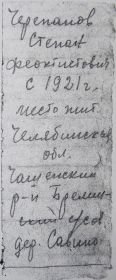 Черепанов
Степан
Феоктистович
с 1921 г.
место жит.
Челябинская
обл.
Чашенский
р-н
дер. Савино